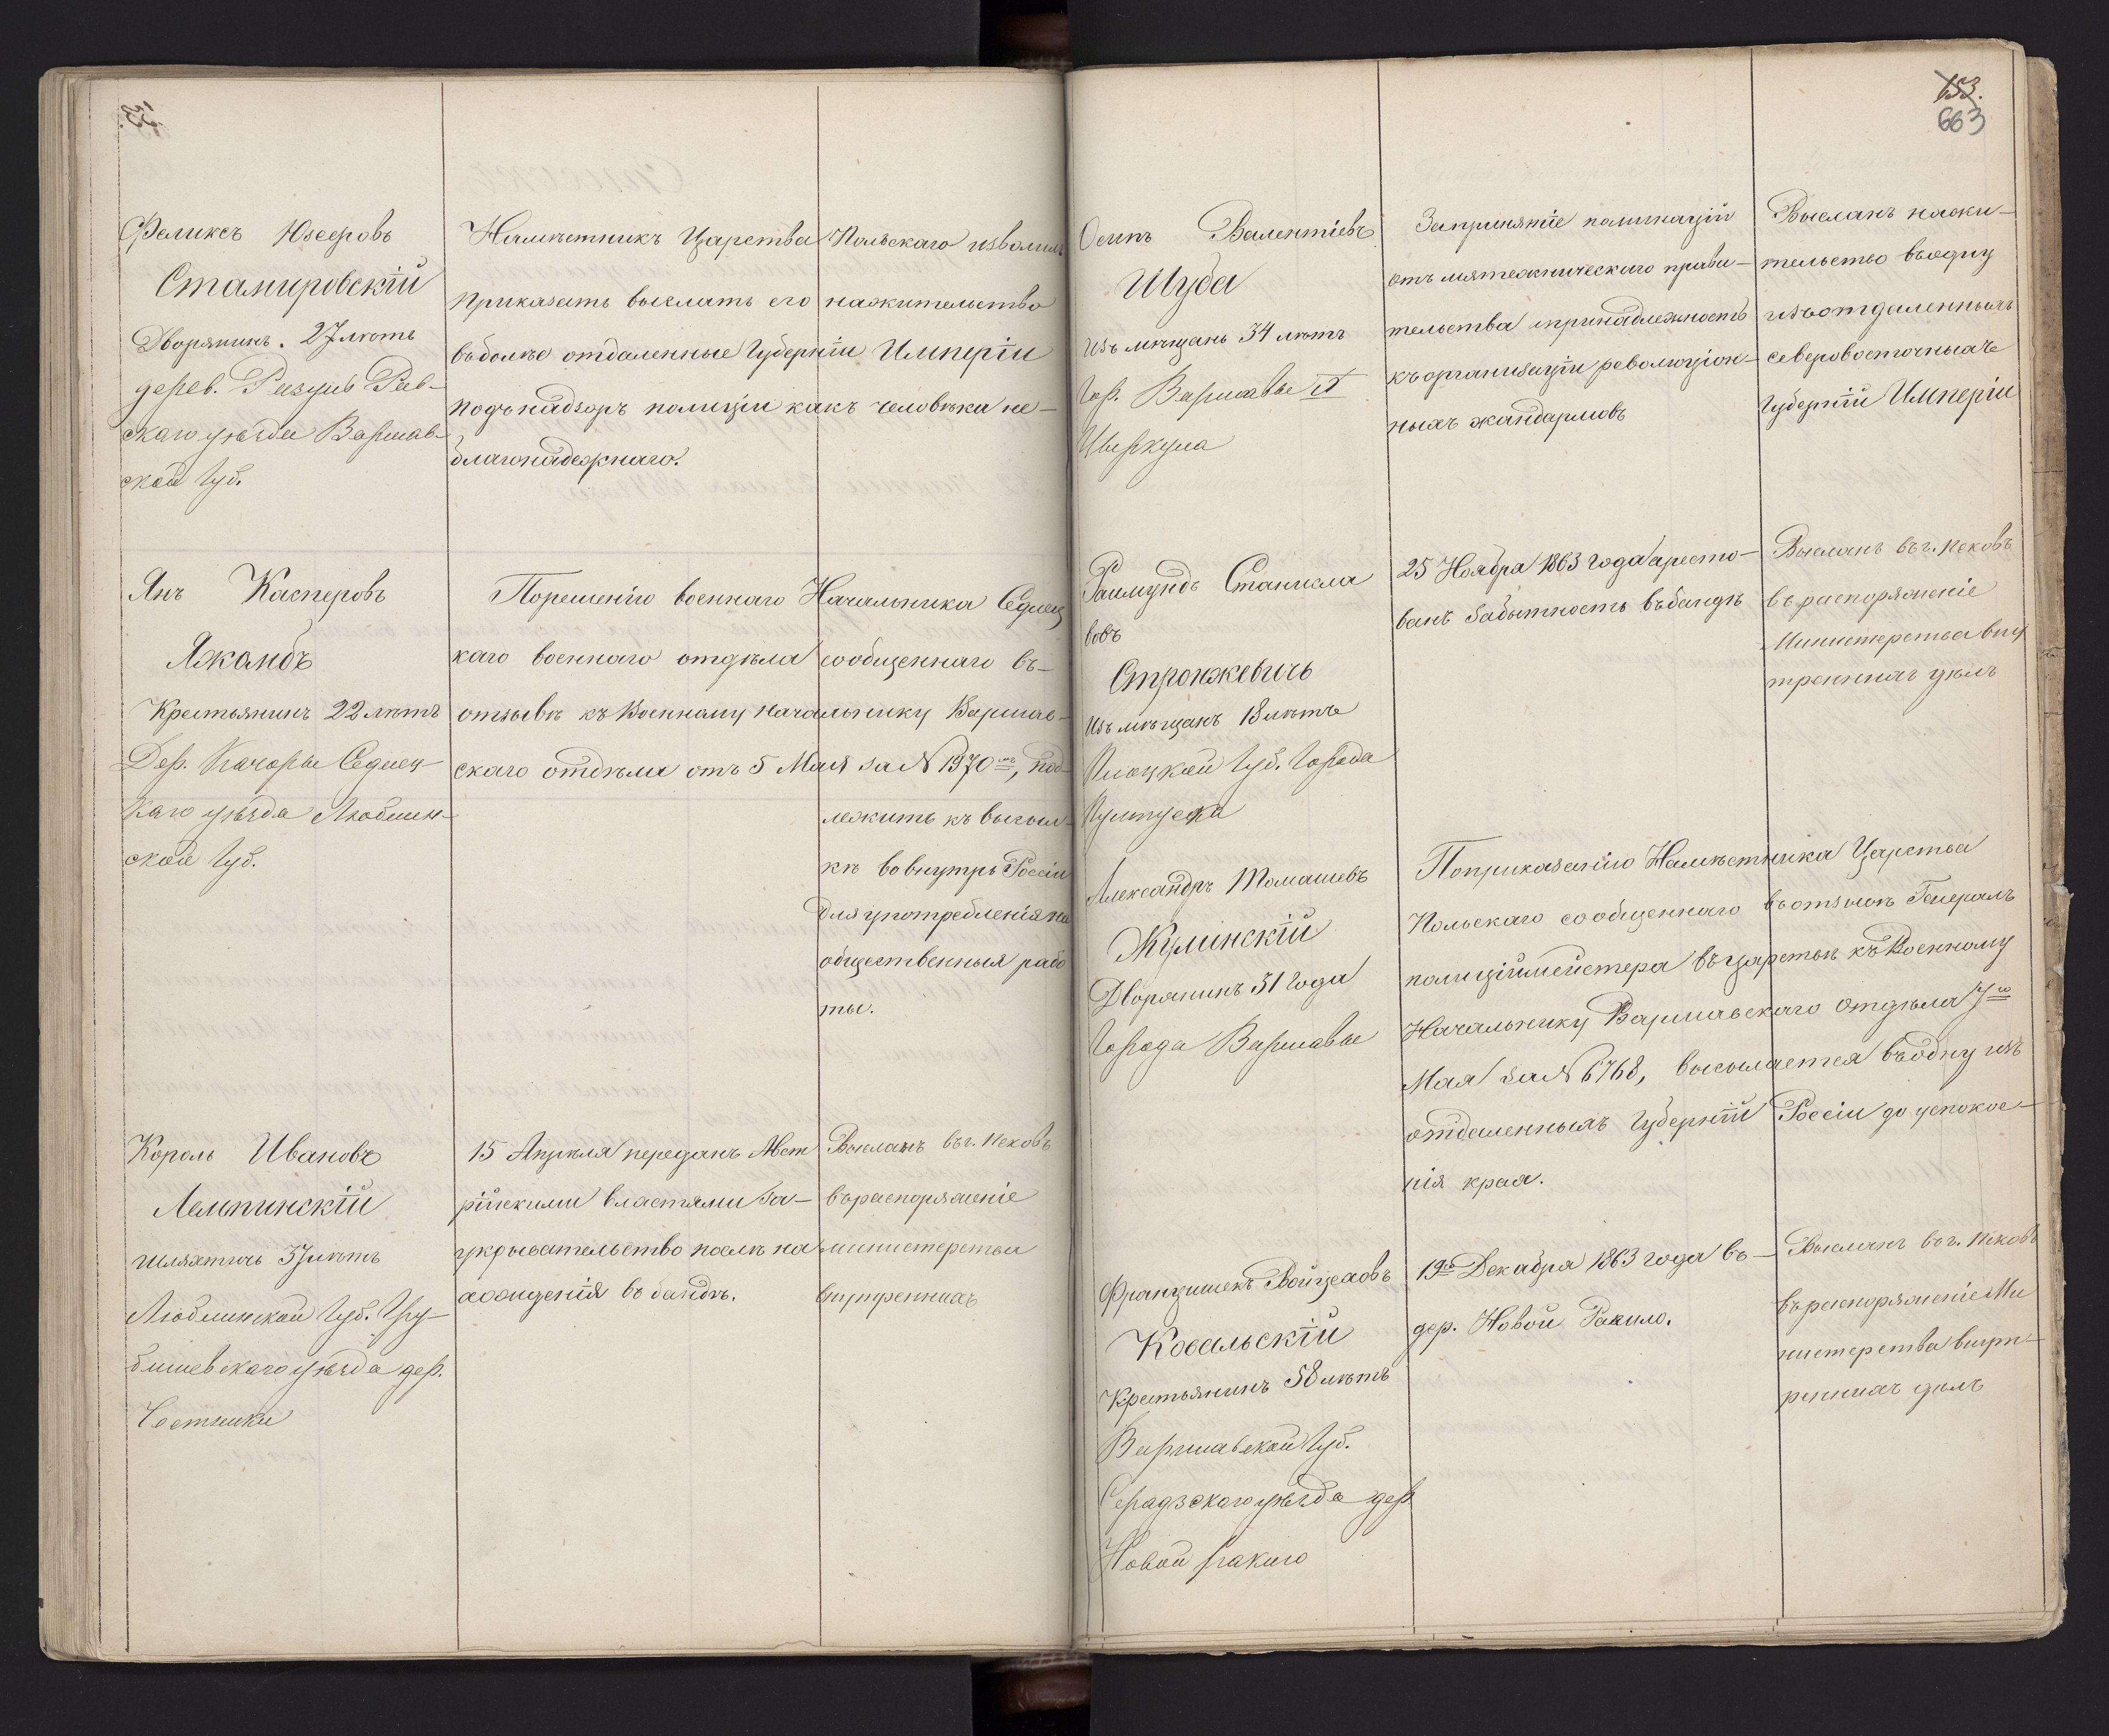 Феликсъ Юзефовъ
Стамировскій
Дворянинъ. 27 лѣтъ
дерев. Рав-
скаго уѣзда Варшав-
ской Губ.
Намѣстникъ Царства Польскаго изволилъ
приказать выслать его на жительство
въ болѣе отдаленные Губерніи Имперіи
подъ надзоръ полиціи какъ человѣка не-
благонадежнаго.
Янъ Касперовъ
Яжомбъ
Крестьянинъ 22 лѣтъ
Дер. Качоры Седлец-
каго уѣзда Люблин-
ской Губ.
По решенію военнаго Начальника Седлец
каго военнаго отдѣла сообщеннаго въ-
отзывѣ къ Военному Начальнику Варшав-
скаго отдѣла отъ 5 Мая за № 1970, под-
лежитъ къ высыл-
кѣ во внутрь Россіи
для употребленія на
общественныя рабо
ты.
Король Ивановъ
Лемпинскій
шляхтичь 37 лѣтъ
Люблинской Губ. Гру-
бишевскаго уѣзда дер.
Честники
15 Апрѣля переданъ Авст
рійскими властями за-
укрывательство послѣ на
хожденія въ бандѣ.
Высланъ въ г. Псковъ
въ распоряженіе
министерства
внутреннихъ
153.
663
Осипъ Валентіевъ
Шуба
Изъ мѣщанъ 34 лѣтъ
Гор. Варшавы IX
Циркула
За принятіе номинаціи
отъ мятежническаго прави-
тельства и принадлежность
къ организаціи революціон-
ныхъ жандармовъ
Высланъ на жи-
тельство въ одну
изъ отдаленныхъ
северовосточныхъ
Губерній Имперіи
Раймундъ Станисла
вовъ
Стронжевичь
Изъ мѣщанъ 18 лѣтъ
Плоцкой Губ. Города
Пултуска
25 Ноября 1863 года аресто-
ванъ за бытность въ бандѣ
Высланъ въ г. Псковъ
въ распоряженіе
Министерства вну
треннихъ дѣлъ
Александръ Томашевъ
Жулинскій
Дворянинъ 31 года
Города Варшавы
По приказанію Намѣстника Царства
Польскаго сообщеннаго въ отзывѣ Генералъ
полиціймейстера въ царствѣ къ Военному
Начальнику Варшавскаго отдѣла 7го
Мая за № 6768, высылается въ одну изъ
отдаленныхъ Губерній Россіи до успокое-
нія края.
Францишекъ Войцеховъ
Ковальскій
Крестьянинъ 58 лѣтъ
Варшавской Губ.
Серадзскаго уѣзда дер.
Новой
19го Декабря 1863 года въ-
дер. Новой
Высланъ въ г. Псковъ
въ распоряженіе Ми
нистерства внут-
реннихъ дѣлъ